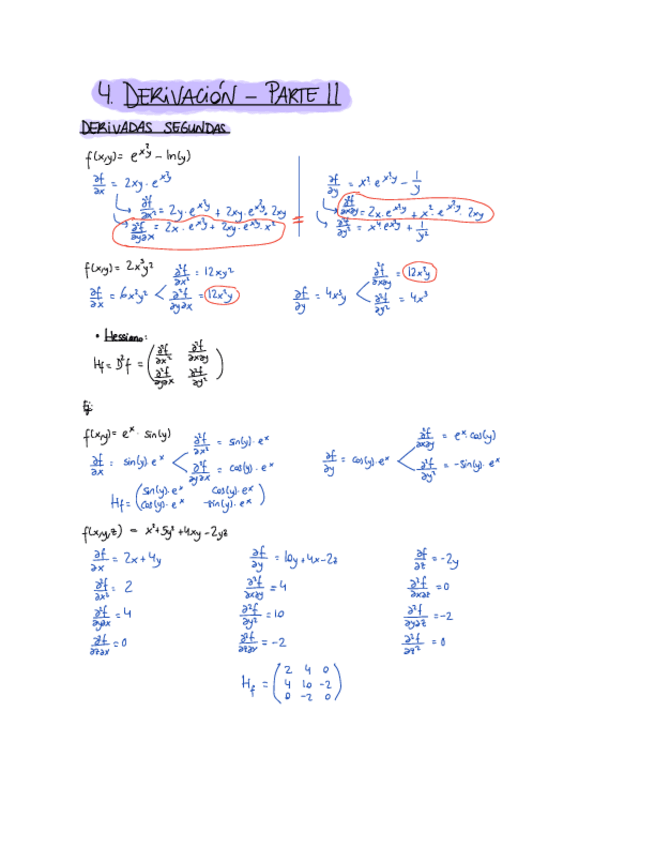 4. DERIVACIÓN - PARTE II
DERIVADAS SEGUNDAS
f(x,y) = e^{x²y} - ln(y)
∂f/∂x = 2xy · e^{x²y}
∂²f/∂x² = 2y · e^{x²y} + 2xy · e^{x²y} · 2xy
∂²f/∂y∂x = 2x · e^{x²y} + 2xy · e^{x²y} · x²
=
∂f/∂y = x² · e^{x²y} - 1/y
∂²f/∂x∂y = 2x · e^{x²y} + x² · e^{x²y} · 2xy
∂²f/∂y² = x⁴ e^{x²y} + 1/y²
f(x,y) = 2x³y²
∂f/∂x = 6x²y²
∂²f/∂x² = 12xy²
∂²f/∂y∂x = 12x²y
∂f/∂y = 4x³y
∂²f/∂x∂y = 12x²y
∂²f/∂y² = 4x³
• Hessiano:
Hf = D²f = ( ∂²f/∂x² ∂²f/∂x∂y
∂²f/∂y∂x ∂²f/∂y² )
Ej:
f(x,y) = e^x · sin(y)
∂f/∂x = sin(y) · e^x
∂²f/∂x² = sin(y) · e^x
∂²f/∂y∂x = cos(y) · e^x
∂f/∂y = cos(y) · e^x
∂²f/∂x∂y = e^x · cos(y)
∂²f/∂y² = -sin(y) · e^x
Hf = ( sin(y) · e^x cos(y) · e^x
cos(y) · e^x -sin(y) · e^x )
f(x,y,z) = x² + 5y² + 4xy - 2yz
∂f/∂x = 2x + 4y
∂²f/∂x² = 2
∂²f/∂y∂x = 4
∂²f/∂z∂x = 0
∂f/∂y = 10y + 4x - 2z
∂²f/∂x∂y = 4
∂²f/∂y² = 10
∂²f/∂z∂y = -2
∂f/∂z = -2y
∂²f/∂x∂z = 0
∂²f/∂y∂z = -2
∂²f/∂z² = 0
H_f = ( 2 4 0
4 10 -2
0 -2 0 )